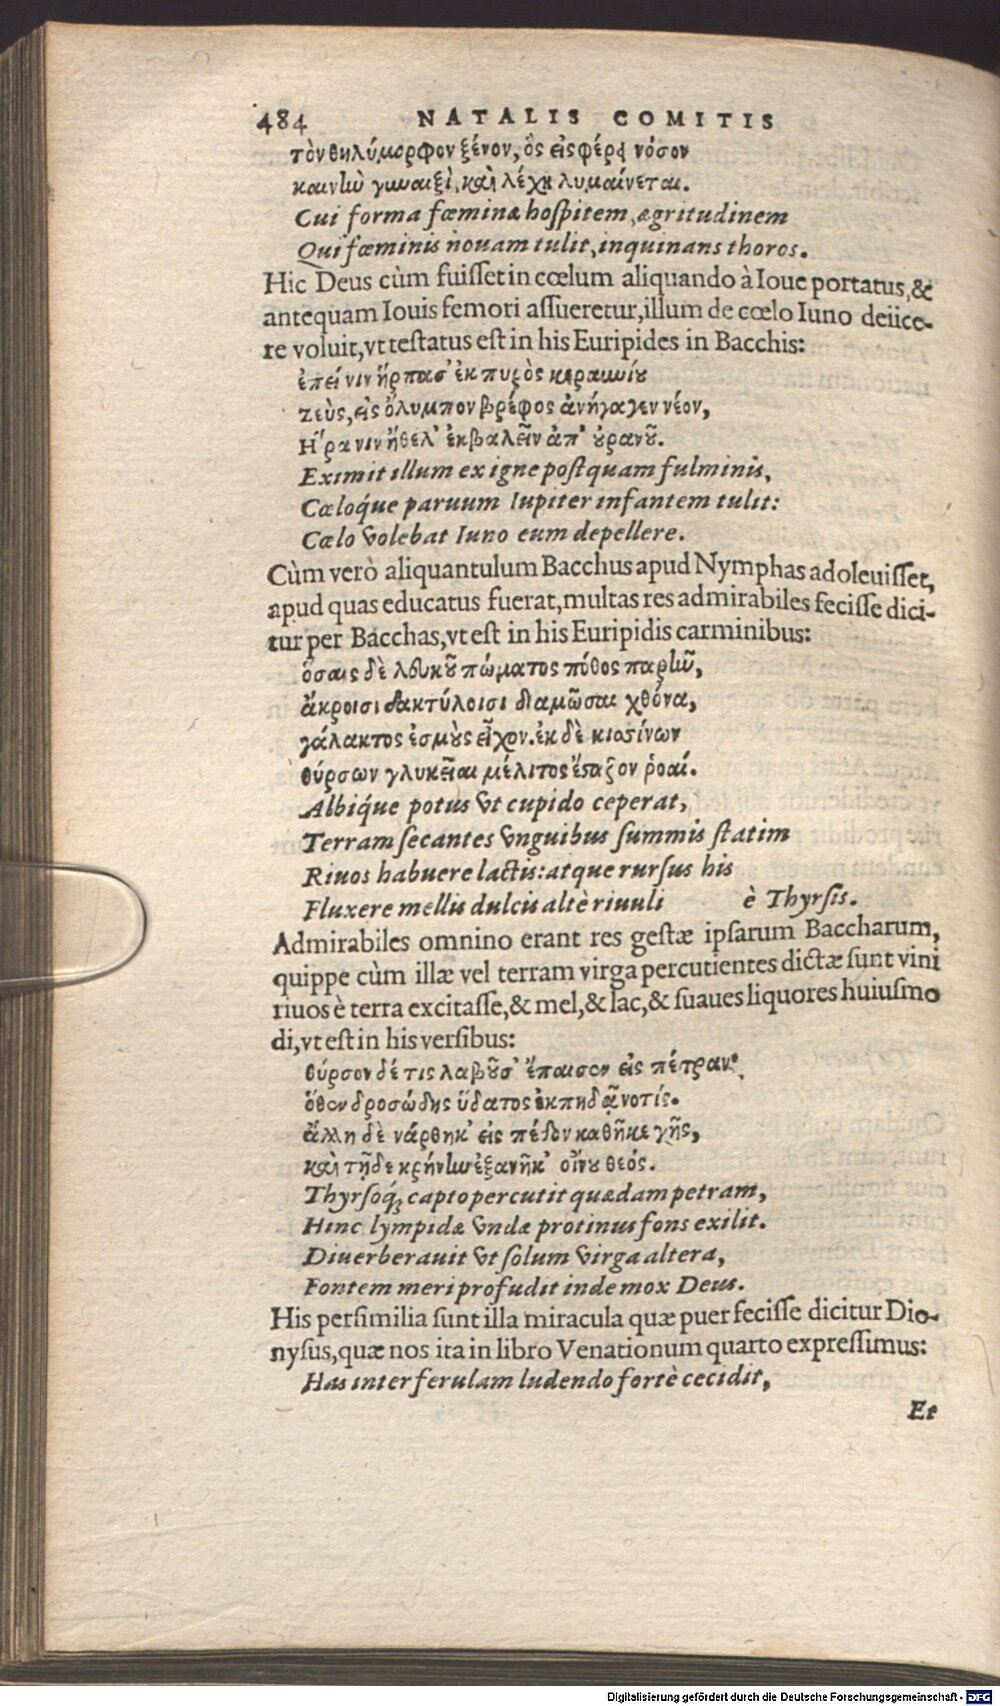 484 NATALIS COMITIS
τὸν θηλύμορφον ξένον, ὃς εἰσφέρει νόσον
καινὴν γυναιξὶ, καὶ λέχη λυμαίνεται.
Cui forma fœminæ hospitem, ægritudinem
Qui fœminis nouam tulit, inquinans thoros.
Hic Deus cùm fuisset in cœlum aliquando à Ioue portatus, &
antequam Iouis femori assueretur, illum de cœlo Iuno deiice-
re voluit, vt testatus est in his Euripides in Bacchis:
ἐπεί νιν ἥρπασ' ἐκ πυρὸς κεραυνίου
ζεὺς, εἰς ὄλυμπον βρέφος ἀνήγαγεν νέον,
Η῞ρα νιν ἤθελ' ἐκβαλεῖν ἀπ' οὐρανοῦ.
Eximit illum ex igne postquam fulminis,
Cœloq́ue paruum Iupiter infantem tulit:
Cœlo volebat Iuno eum depellere.
Cùm verò aliquantulum Bacchus apud Nymphas adoleuisset,
apud quas educatus fuerat, multas res admirabiles fecisse dici-
tur per Bacchas, vt est in his Euripidis carminibus:
ὅσαις δὲ λευκοῦ πώματος πόθος παρῆν,
ἄκροισι δακτύλοισι διαμῶσαι χθόνα,
γάλακτος ἑσμοὺς εἶχον. ἐκ δὲ κισσίνων
θύρσων γλυκεῖαι μέλιτος ἔσταζον ῥοαί.
Albiq́ue potus vt cupido ceperat,
Terram secantes vnguibus summis statim
Riuos habuere lactis: atque rursus his
Fluxere mellis dulcis altè riuuli è Thyrsis.
Admirabiles omnino erant res gestæ ipsarum Baccharum,
quippe cùm illæ vel terram virga percutientes dictæ sunt vini
riuos è terra excitasse, & mel, & lac, & suaues liquores huiusmo
di, vt est in his versibus:
θύρσον δέ τις λαβοῦσ' ἔπαισεν εἰς πέτραν·
ὅθεν δροσώδης ὕδατος ἐκπηδᾷ νοτίς.
ἄλλη δὲ νάρθηκ' εἰς πέδον καθῆκε γῆς,
καὶ τῇδε κρήνην ἐξανῆκ' οἴνου θεός.
Thyrsoq́; capto percutit quædam petram,
Hinc lympidæ vndæ protinus fons exilit.
Diuerberauit vt solum virga altera,
Fontem meri profudit inde mox Deus.
His persimilia sunt illa miracula quæ puer fecisse dicitur Dio-
nysus, quæ nos ita in libro Venationum quarto expressimus:
Has inter ferulam ludendo fortè cecidit,
Et
Digitalisierung gefördert durch die Deutsche Forschungsgemeinschaft - DFG